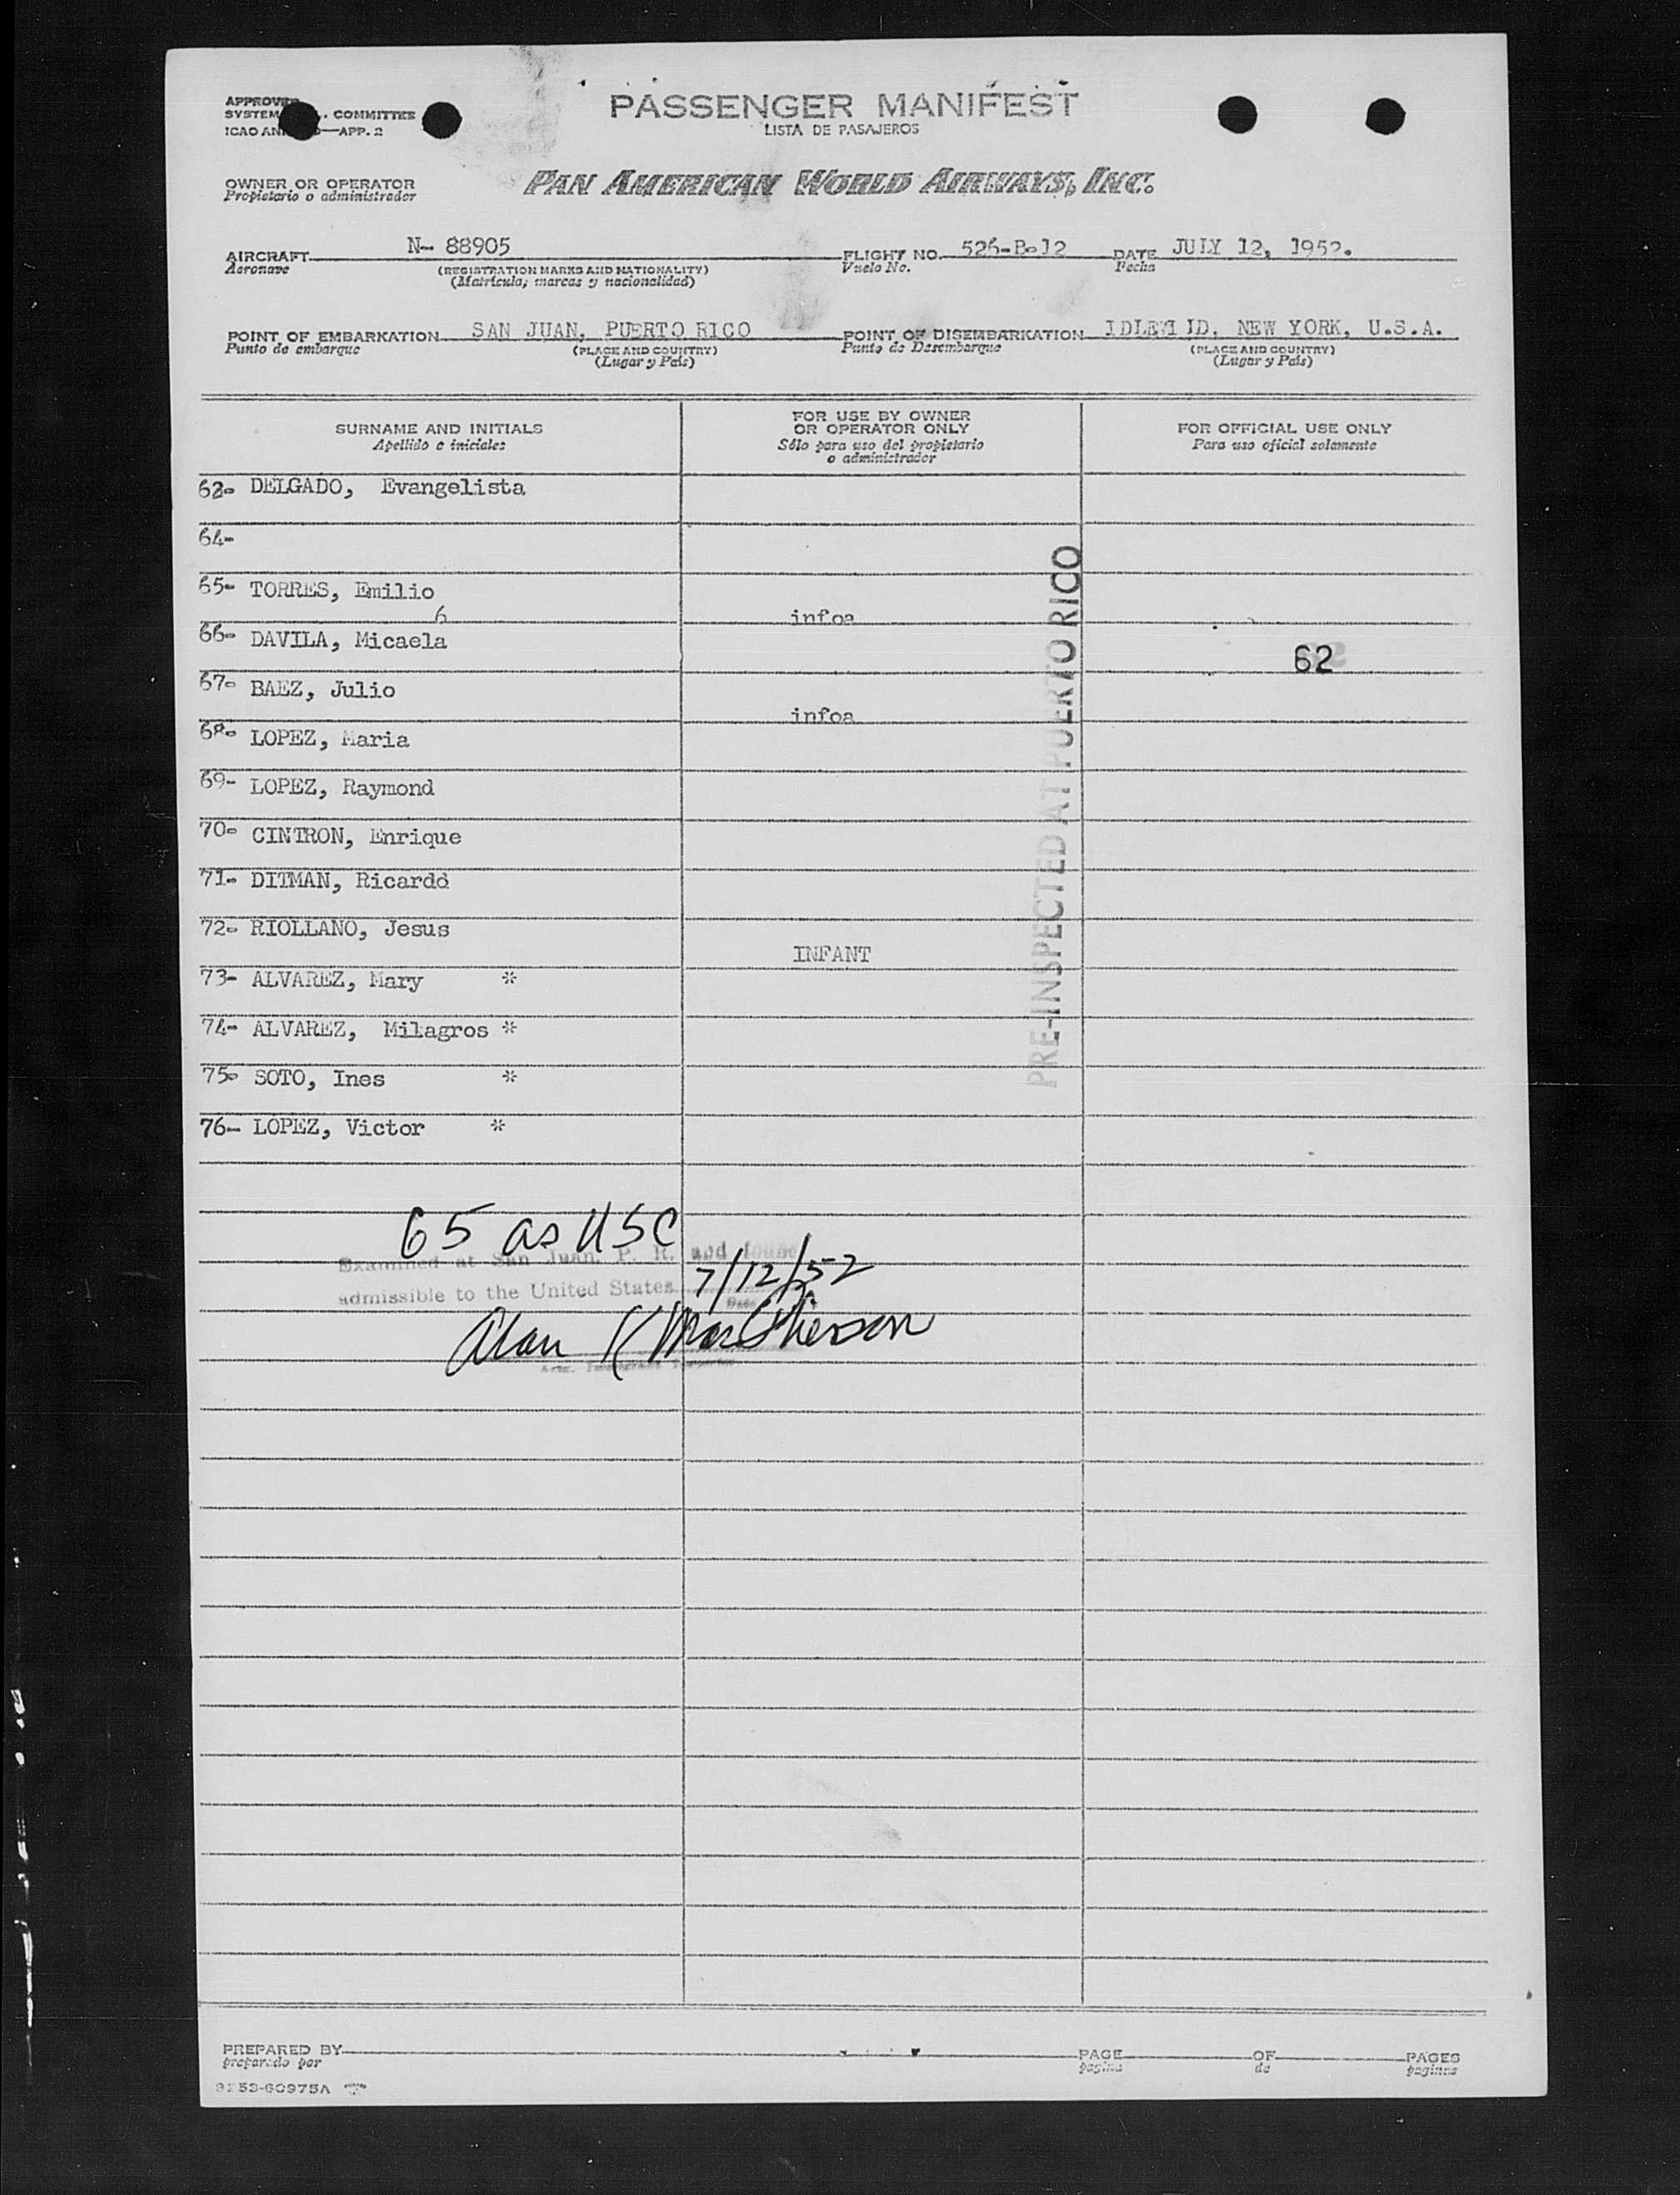 PASSENGER MANIFEST
LISTA DE PASAJEROS
APPROVED
SYSTEM COMMITTEE
ICAO APP. 2
OWNER OR OPERATOR
Propietario o administrador
PAN AMERICAN WORLD AIRWAYS, INC.
AIRCRAFT N- 88905 FLIGHT NO. 526-B-12 DATE JULY 12, 1952.
Aeronave (REGISTRATION MARKS AND NATIONALITY) Vuelo No. Fecha
(Matrícula, marcas y nacionalidad)
POINT OF EMBARKATION SAN JUAN, PUERTO RICO POINT OF DISEMBARKATION IDLEWILD, NEW YORK, U.S.A.
Punto de embarque (PLACE AND COUNTRY) Punto de Desembarque (PLACE AND COUNTRY)
(Lugar y País) (Lugar y País)
SURNAME AND INITIALS
Apellido e iniciales
FOR USE BY OWNER
OR OPERATOR ONLY
Sólo para uso del propietario
o administrador
FOR OFFICIAL USE ONLY
Para uso oficial solamente
63- DELGADO, Evangelista
64-
65- TORRES, Emilio
6 infoa
66- DAVILA, Micaela
62
67- BAEZ, Julio
infoa
68- LOPEZ, Maria
69- LOPEZ, Raymond
70- CINTRON, Enrique
71- DITMAN, Ricardo
72- RIOLLANO, Jesus
INFANT
73- ALVAREZ, Mary *
74- ALVAREZ, Milagros *
75- SOTO, Ines *
76- LOPEZ, Victor *
PRE-INSPECTED AT PUERTO RICO
65 as USC
Examined at San Juan, P. R. and found
admissible to the United States 7/12/52
Date
Alan K MacPherson
PREPARED BY PAGE OF PAGES
preparado por pagina de paginas